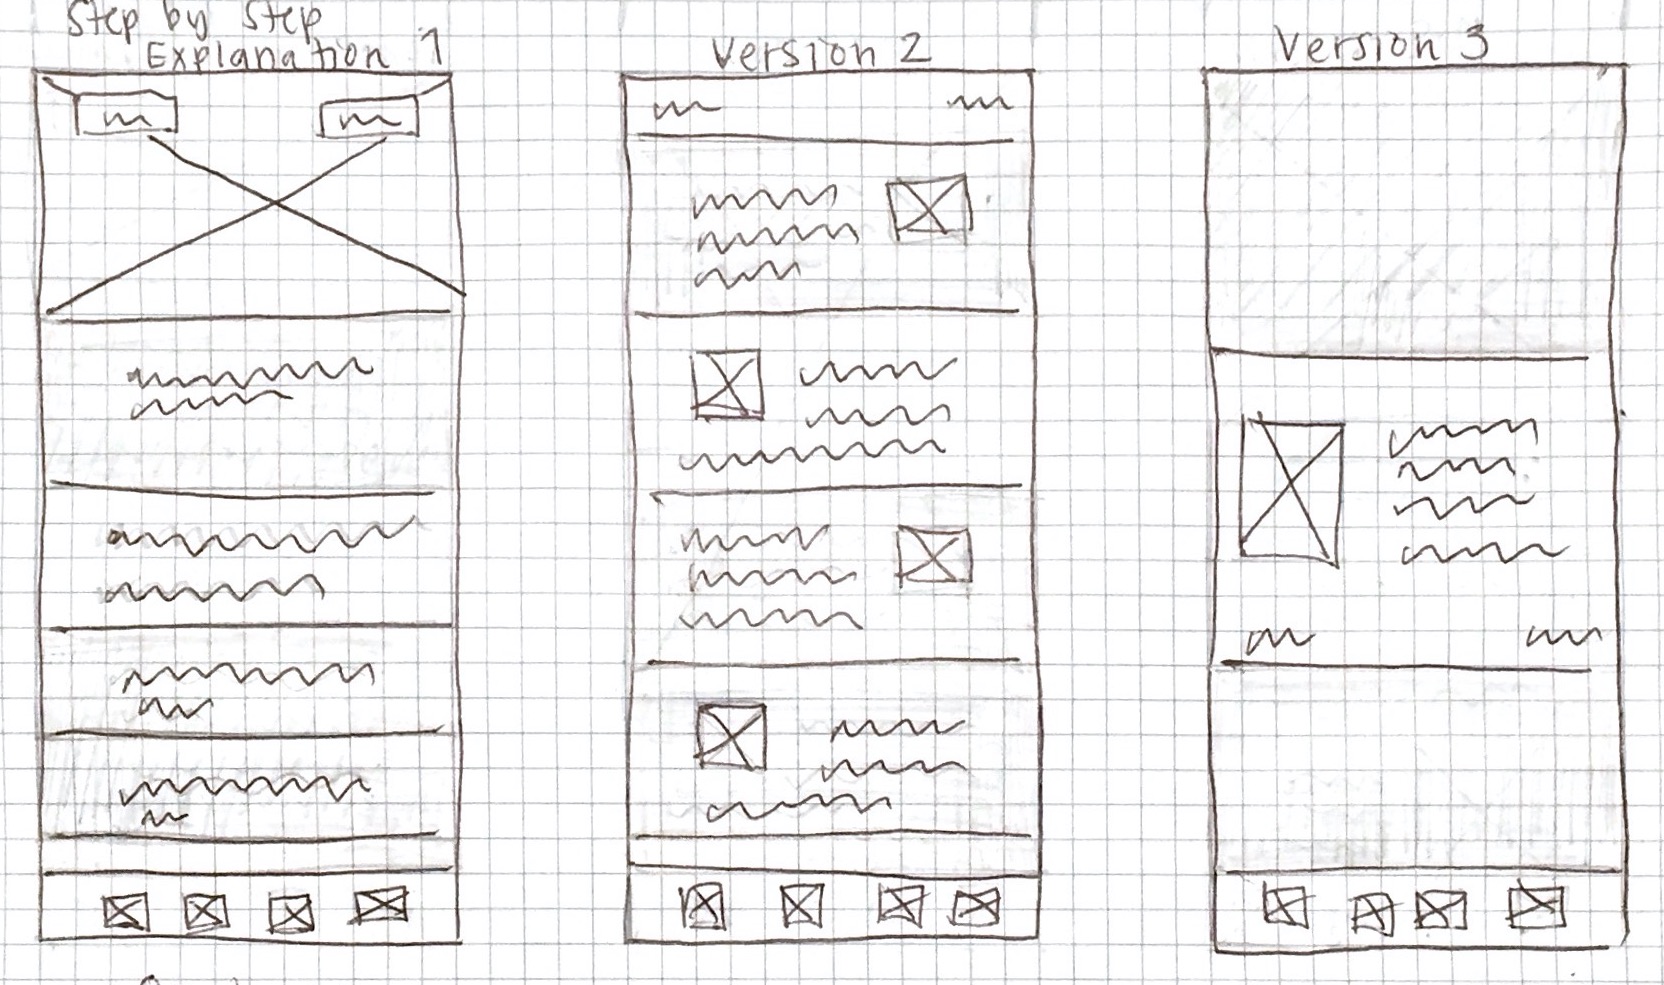 Step by Step
Explanation 1
Version 2
Version 3